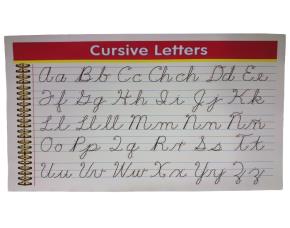 Cursive Letters
Aa Bb Cc Chch Dd Ee
Ff Gg Hh Ii Jj Kk
Ll Llll Mm Nn Ññ
Oo Pp Qq Rr Ss Tt
Uu Vv Ww Xx Yy Zz